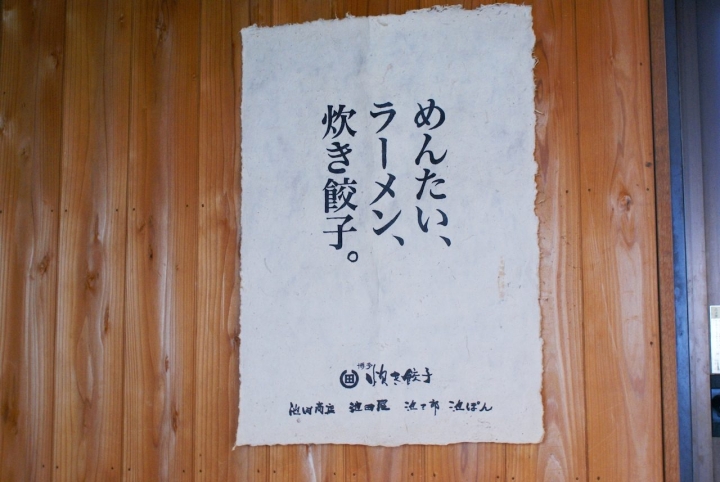 めんたい、
ラーメン、
炊き餃子。
博多
田 炊き餃子
池田商店 池田屋 池田郎 池ぽん